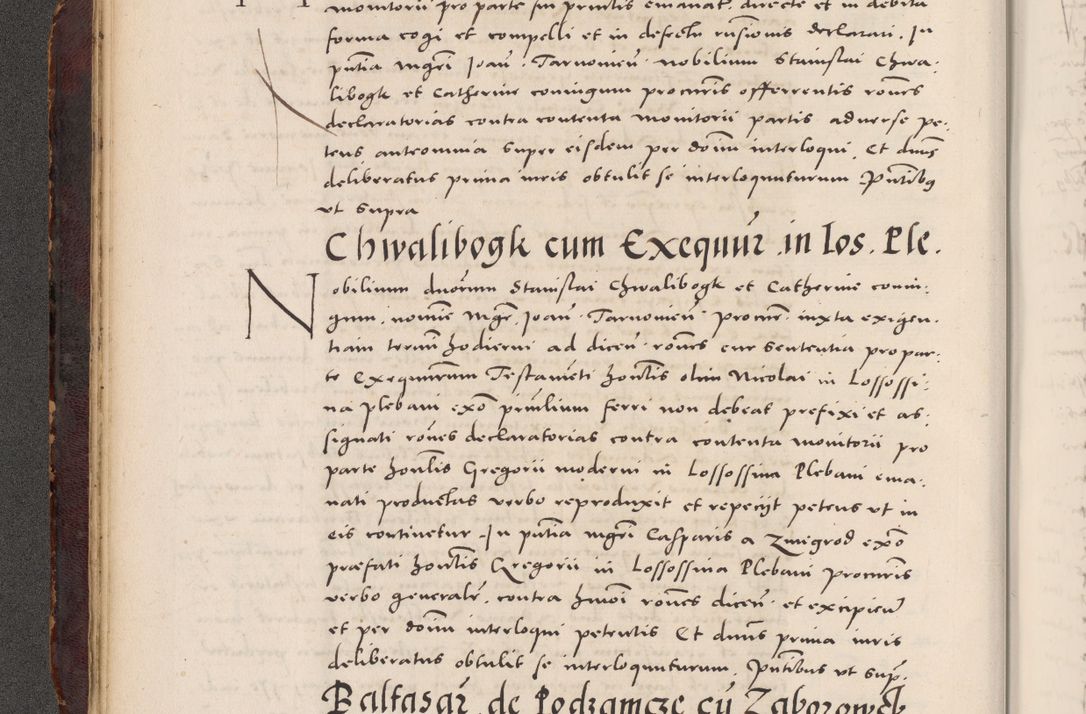 monitorii pro parte sui princtis emanat. directe et in debita
forma cogi et compelli et in defectu rusionis declarari. In
pñtia mgrĩ Joañ. Tarnomieñ. nobilium Stanislai Chwa.
libogk et Catherine coniugum procuris offerrentis rones
declaratorias contra contenta monitorii partis adverse pe.
tens anteomnia super eisdem per dõim interloqui. Et dnus
deliberatus prima iuris obtulit se interloquuturum Pñtibus
ut supra
Chwalibogk cum Exequür in los. Ple.
Nobilium duorum Stanislai Chwalibogk et Catherine coniu:
gum. nomine mgrĩ Joañ. Tarnomieñ procurr. iuxta exigen.
tiam termi hodierni ad diceñ. rones cur sententia propar:
te Exequurum Testameti honĩlis olim Nicolai in Lossossi:
na plebani exõ privlium ferri non debeat prefixi et as:
signati rones declaratorias contra contenta monitorii pro
parte honlis Gregorii moderni in Lossossina Plebani ema:
nati productas verbo reproduxit et repecijt petens ut in
eis continetur. In pñtia mgrĩ Casparis a Zmegrod exõ
præfati honĩlis Gregorii in Lossossina Plebani procuris
verbo generalr. contra hmõi rones diceñ. et excipieñ
et per dõim interloqui petentis Et dnus prima iuris
deliberatus obtulit se interloquuturum. Pñtibus ut sup.
Baltasar de Podzamcze cũ Zaborowsk